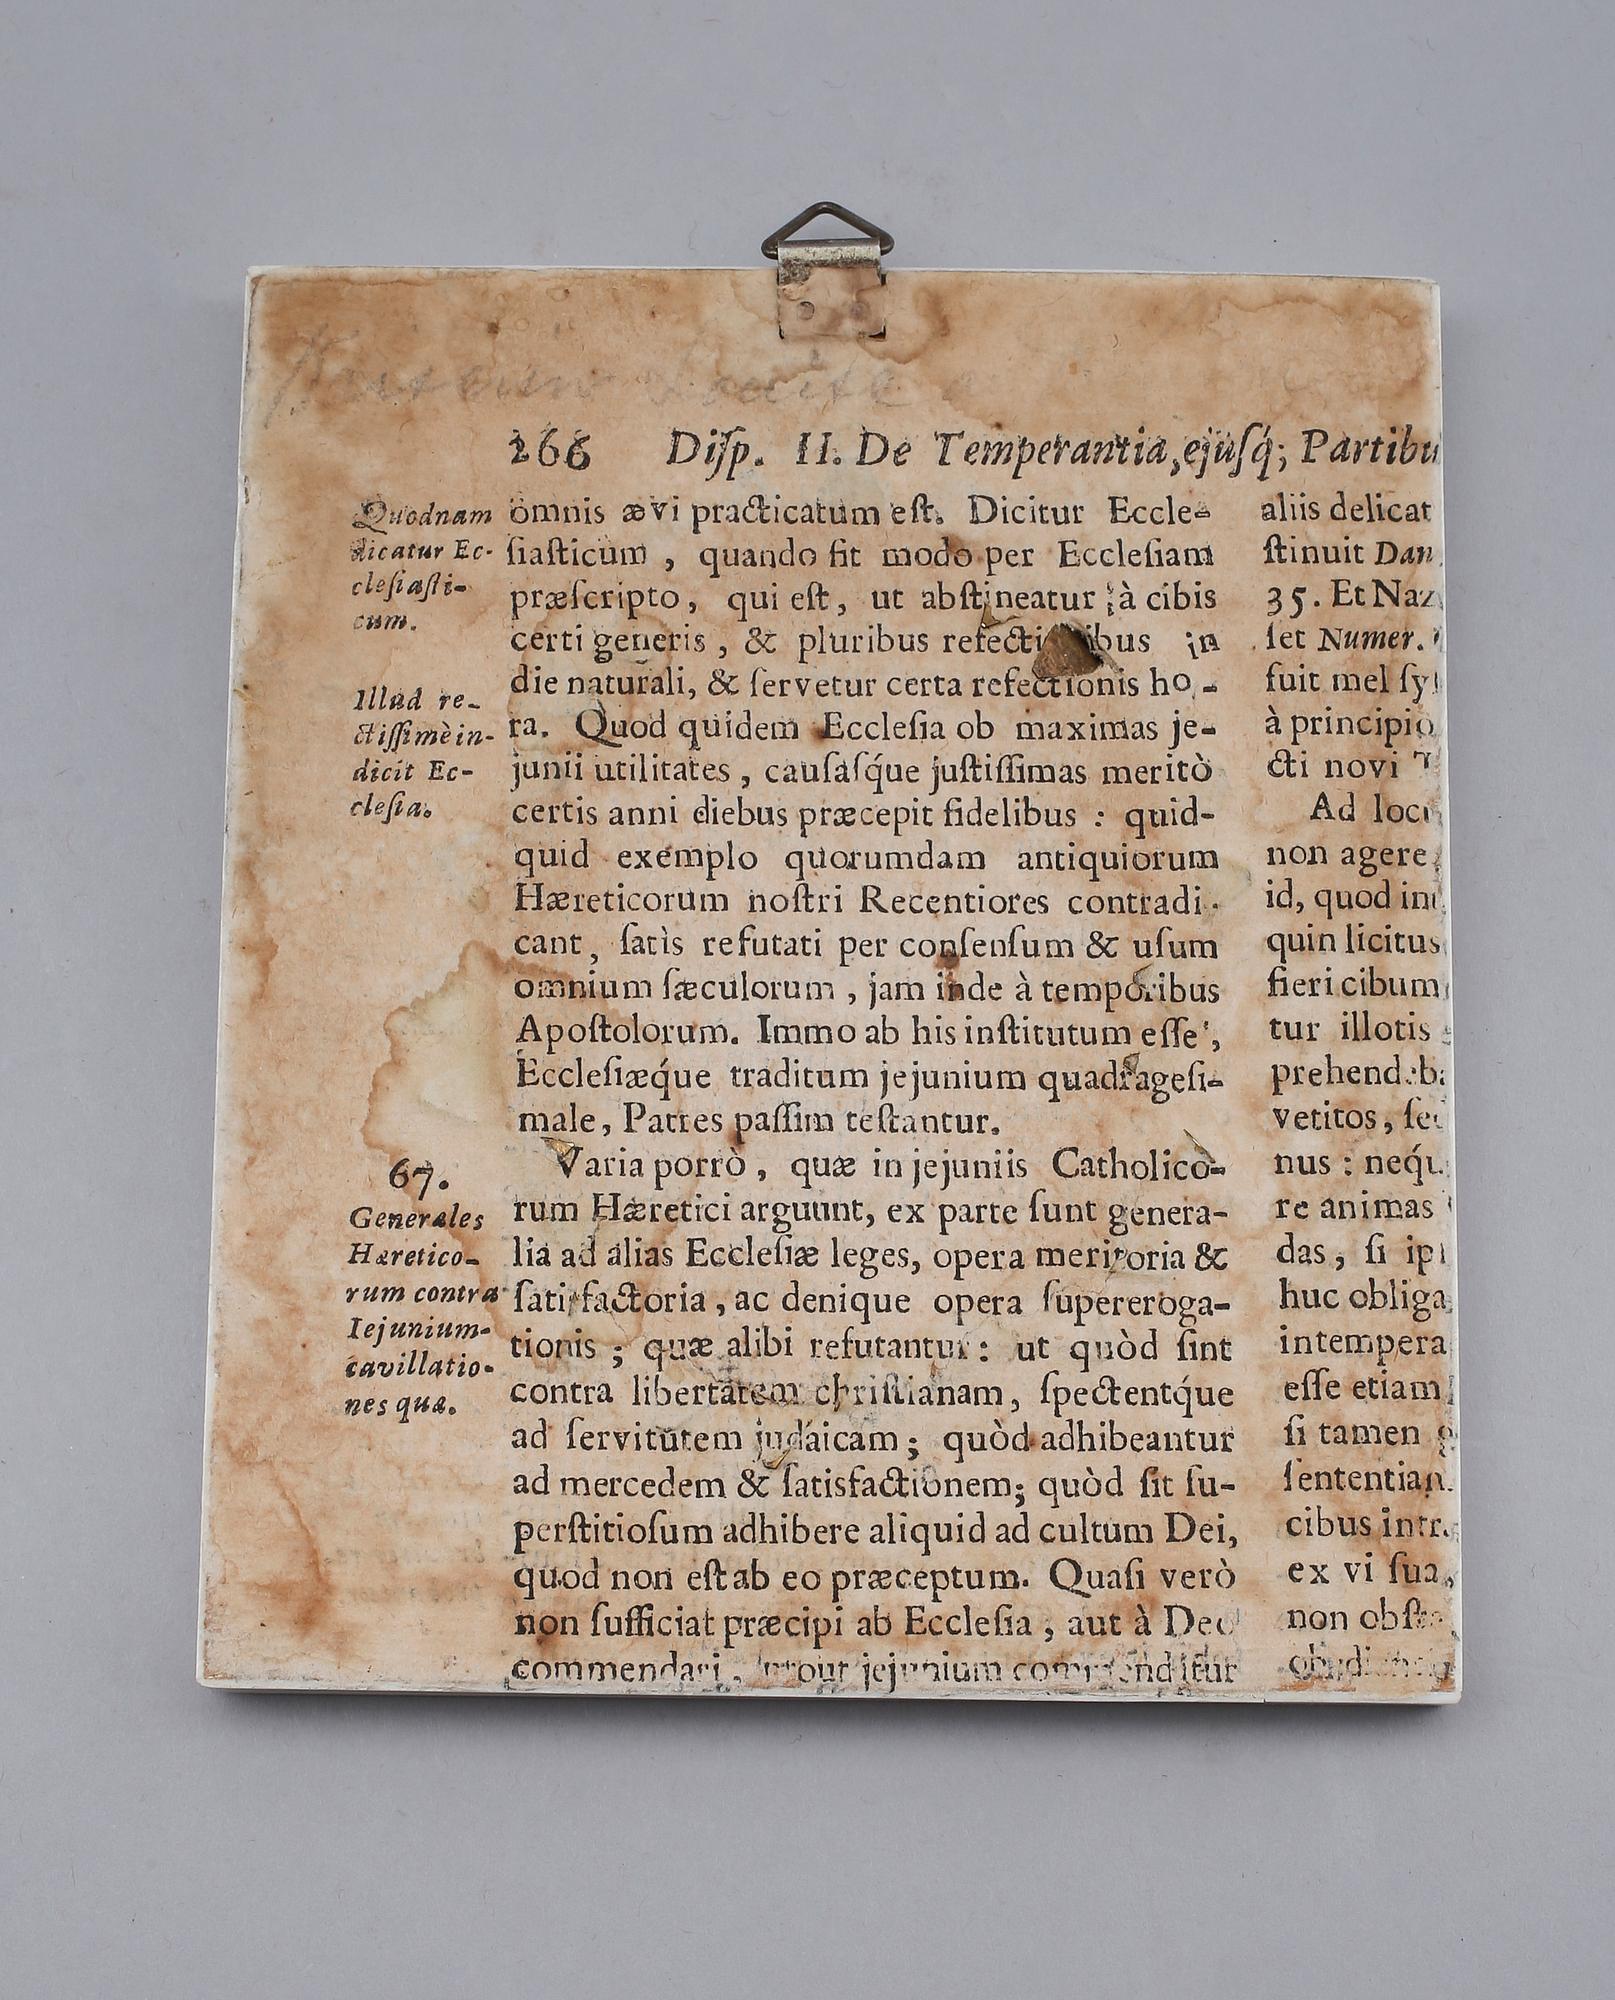 266 Diſp. II. De Temperantia, ejuſq́; Partibu
Quodnam
dicatur Ec-
cleſiaſti-
cum.
Illud re-
ctiſſimè in-
dicit Ec-
cleſia.
67.
Generales
Hæretico-
rum contra
Iejunium-
cavillatio-
nes quæ.
omnis ævi practicatum eſt. Dicitur Eccle-
ſiaſticum, quando fit modo per Eccleſiam
præſcripto, qui eſt, ut abſtineatur à cibis
certi generis, & pluribus in
die naturali, & ſervetur certa refectionis ho-
ra. Quod quidem Eccleſia ob maximas je-
junii utilitates, cauſaſq́ue juſtiſſimas meritò
certis anni diebus præcepit fidelibus: quid-
quid exemplo quorumdam antiquiorum
Hæreticorum noſtri Recentiores contradi-
cant, ſatìs refutati per conſenſum & uſum
omnium ſæculorum, jam inde à temporibus
Apoſtolorum. Immo ab his inſtitutum eſſe,
Eccleſiæq́ue traditum jejunium quadrageſi-
male, Patres paſſim teſtantur.
Varia porrò, quæ in jejuniis Catholico-
rum Hæretici arguunt, ex parte ſunt genera-
lia ad alias Eccleſiæ leges, opera meritoria &
ſatisfactoria, ac denique opera ſupereroga-
tionis; quæ alibi refutantur: ut quòd ſint
contra libertatem chriſtianam, ſpectentq́ue
ad ſervitutem judáicam; quòd adhibeantur
ad mercedem & ſatisfactionem; quòd ſit ſu-
perſtitioſum adhibere aliquid ad cultum Dei,
quod non eſt ab eo præceptum. Quaſi verò
non ſufficiat præcipi ab Eccleſia, aut à Deo
commendari, prout jejunium commenditur
aliis delicat
ſtinuit Dan.
35. Et Naz
let Numer.
fuit mel ſyl
à principio
cti novi T
Ad loc
non agere
id, quod in
quin licitus
fieri cibum
tur illotis
prehendeba
vetitos, ſed
nus: neq́u
re animas
das, ſi ip
huc obliga
intempera
eſſe etiam
ſi tamen
ſententiam
cibus intr
ex vi ſua,
non obſta